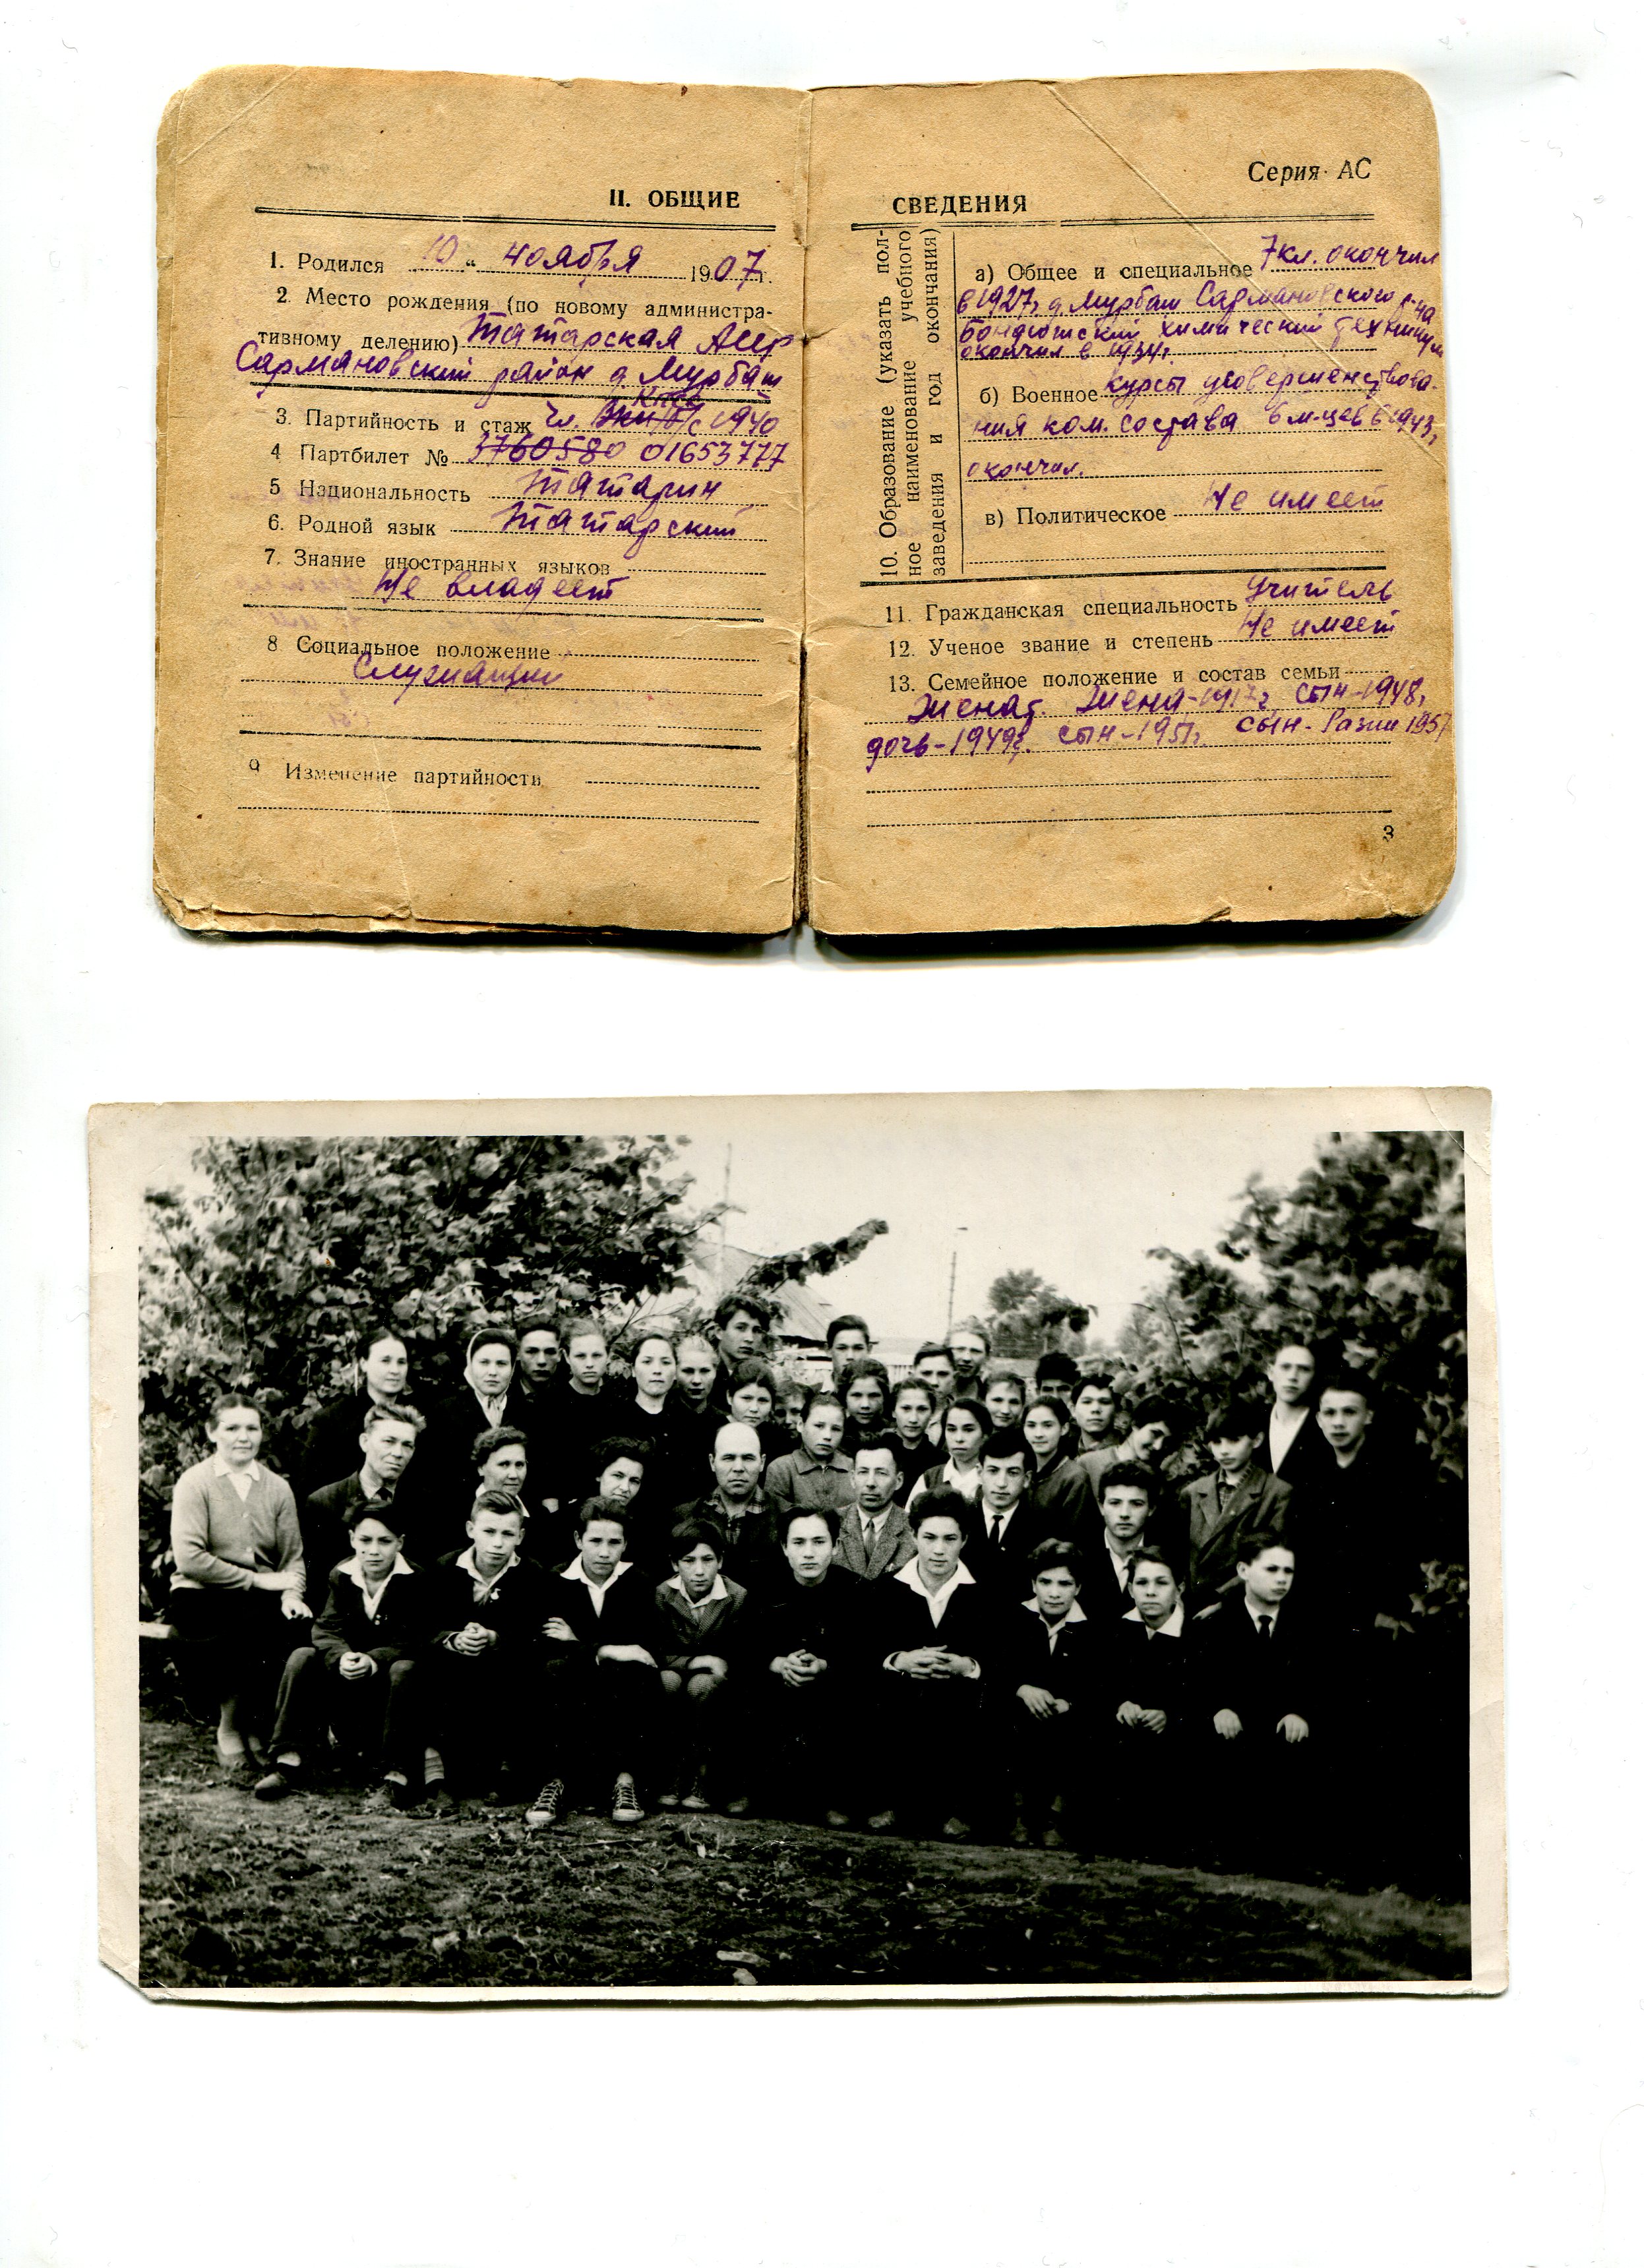 II. ОБЩИЕ
1. Родился 10 " ноября 1907 г.
2. Место рождения (по новому администра-
тивному делению) Татарская Асср
Сармановский район д Мурбаш
КПСС
3. Партийность и стаж чл. с 1940
4 Партбилет № 3760580 01653777
5 Национальность татарин
6. Родной язык татарский
7. Знание иностранных языков
Не владеет
8 Социальное положение
Служащий
9 Изменение партийность
Серия АС
СВЕДЕНИЯ
10. Образование (указать пол-
ное наименование учебного
заведения и год окончания)
а) Общее и специальное 7 кл. окончил
в 1927г д Мурбаш Сармановского р-на
Бондюжский химический техникум
окончил в 1934г.
б) Военное курсы усовершенствова-
ния ком. состава 6 м-цев в 1943г
окончил.
в) Политическое Не имеет
11. Гражданская специальность Учитель
12. Ученое звание и степень Не имеет
13. Семейное положение и состав семьи
Женат. Жена-1917г сын-1948г
дочь-1949г. сын-1951г сын-Разим 1957
3